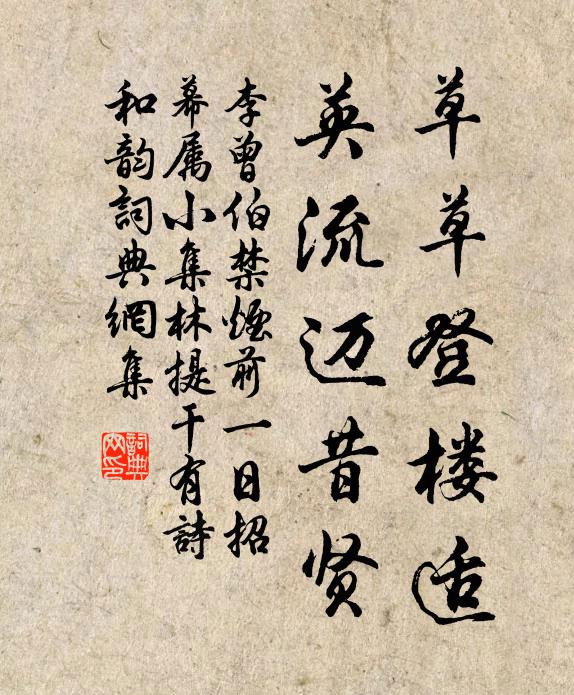 草草登楼适
英流迈昔贤
李曾伯禁烟前一日招
幕属小集林提干有詩
和韵詞典網集
詞典网印